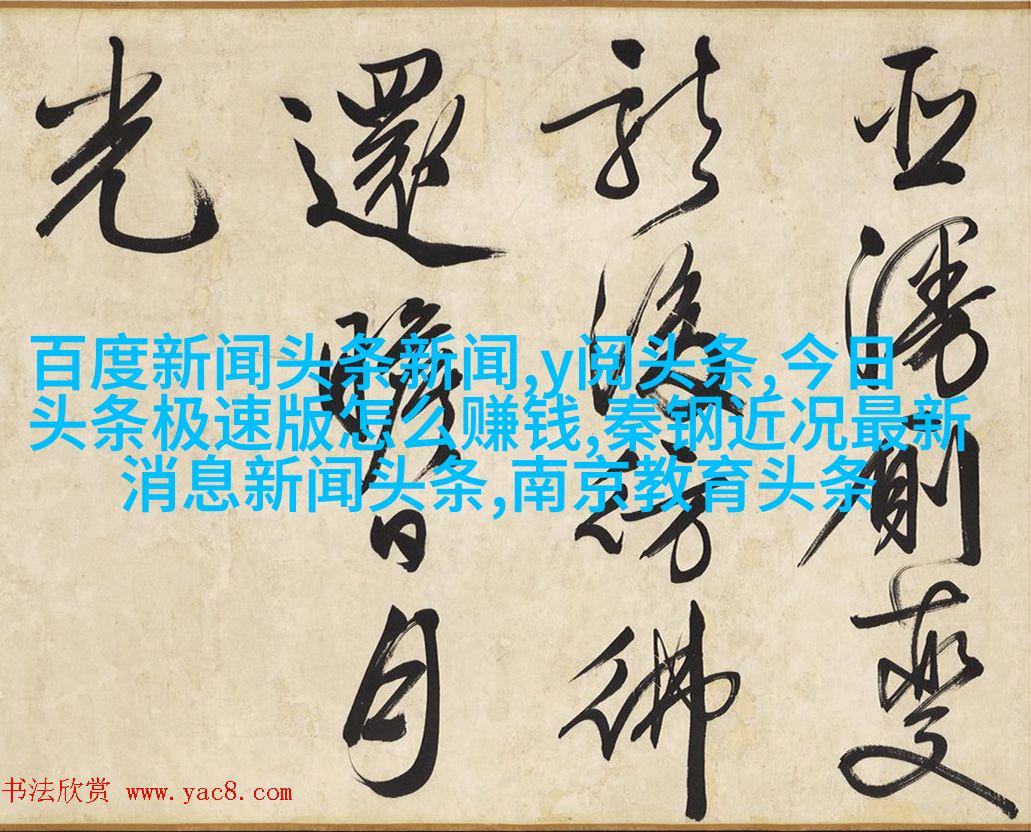 則
後彷彿
還瞻日月
光
百度新闻头条新闻,y阅头条,今日
头条极速版怎么赚钱,秦钢近况最新
消息新闻头条,南京教育头条
书法欣赏 www.yac8.com